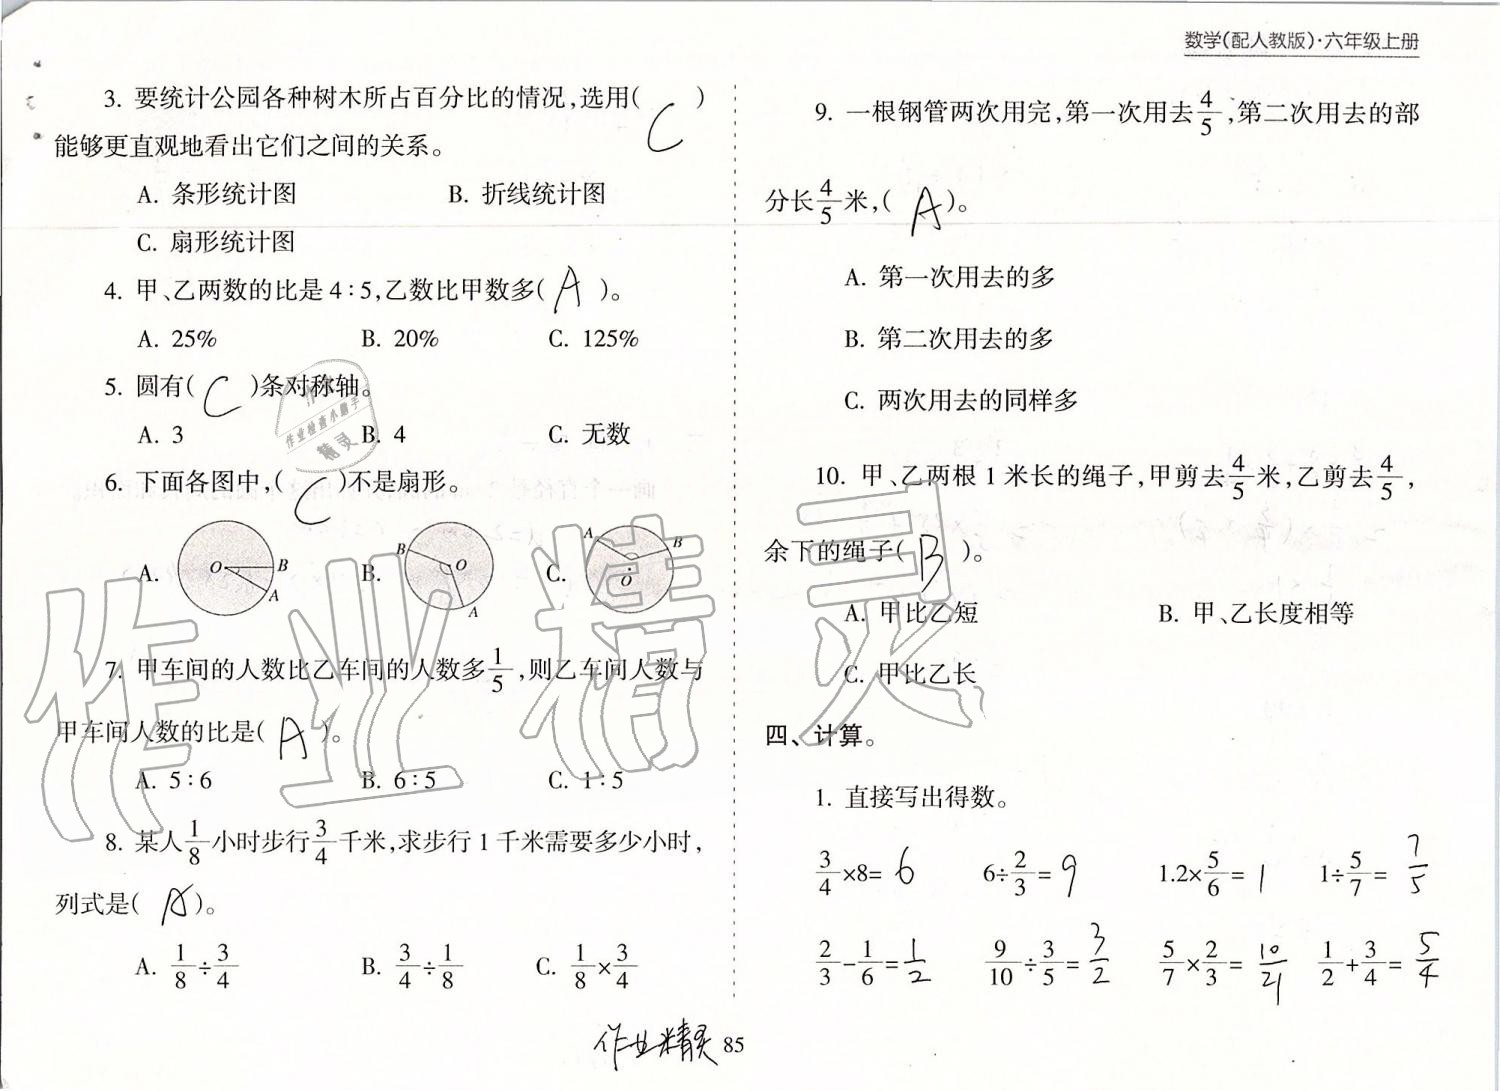 数学(配人教版)·六年级上册
3. 要统计公园各种树木所占百分比的情况,选用( C )
能够更直观地看出它们之间的关系。
A. 条形统计图 B. 折线统计图
C. 扇形统计图
4. 甲、乙两数的比是 4∶5,乙数比甲数多( A )。
A. 25% B. 20% C. 125%
5. 圆有( C )条对称轴。
A. 3 B. 4 C. 无数
6. 下面各图中,( C )不是扇形。
A. O B A B. B O A C. A B O
7. 甲车间的人数比乙车间的人数多1/5,则乙车间人数与
甲车间人数的比是( A )。
A. 5∶6 B. 6∶5 C. 1∶5
8. 某人1/8小时步行3/4千米,求步行 1 千米需要多少小时,
列式是( A )。
A. 1/8÷3/4 B. 3/4÷1/8 C. 1/8×3/4
9. 一根钢管两次用完,第一次用去4/5,第二次用去的部
分长4/5米,( A )。
A. 第一次用去的多
B. 第二次用去的多
C. 两次用去的同样多
10. 甲、乙两根 1 米长的绳子,甲剪去4/5米,乙剪去4/5,
余下的绳子( B )。
A. 甲比乙短 B. 甲、乙长度相等
C. 甲比乙长
四、计算。
1. 直接写出得数。
3/4×8= 6 6÷2/3= 9 1.2×5/6= 1 1÷5/7= 7/5
2/3-1/6= 1/2 9/10÷3/5= 3/2 5/7×2/3= 10/21 1/2+3/4= 5/4
作业精灵
85
作业检查小助手
精灵
作业精灵